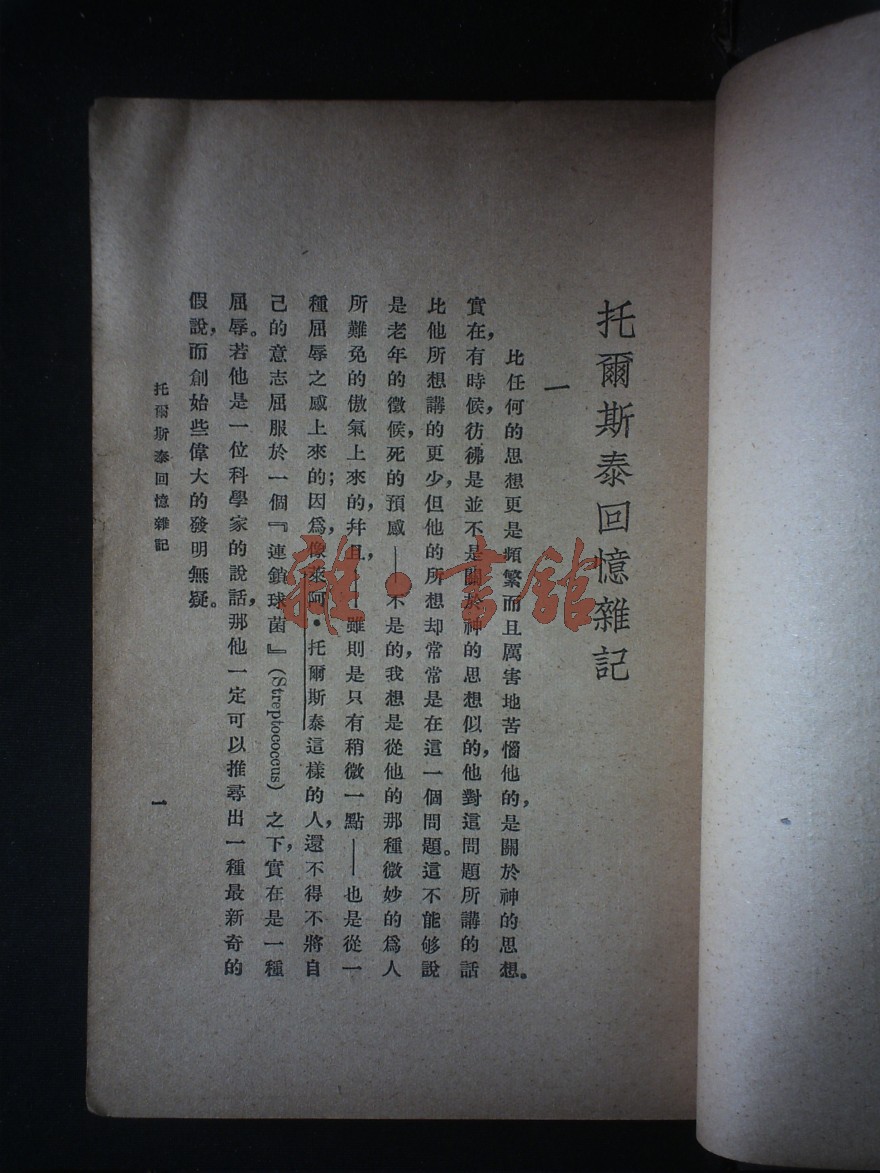 托爾斯泰回憶雜記
一
比任何的思想更是頻繁而且厲害地苦惱他的，是關於神的思想。
實在，有時候，彷彿是並不是關於神的思想似的，他對這問題所講的話
比他所想講的更少，但他的所想却常常是在這一個問題。這不能够說
是老年的徵候，死的預感——不是的，我想是從他的那種微妙的爲人
所難免的傲氣上來的，幷且，——雖則是只有稍微一點——也是從一
種屈辱之感上來的；因爲，像萊阿·托爾斯泰這樣的人，還不得不將自
己的意志屈服於一個『連鎖球菌』(Streptococcus) 之下，實在是一種
屈辱。若他是一位科學家的說話，那他一定可以推尋出一種最新奇的
假說，而創始些偉大的發明無疑。
托爾斯泰回憶雜記
一
雜·書館